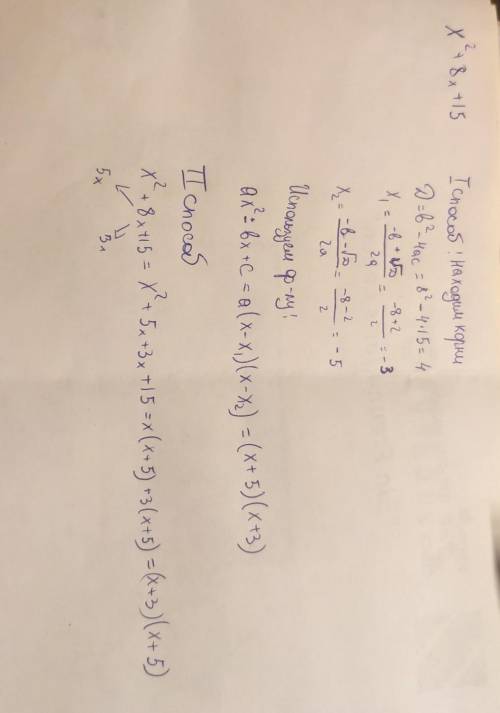 x² + 8x + 15
I способ! Находим корни
D = b² - 4ac = 8² - 4·15 = 4
x₁ = (-b + √D)/2a = (-8+2)/2 = -3
x₂ = (-b - √D)/2a = (-8-2)/2 = -5
Используем ф-лу!
ax² ± bx + c = a(x - x₁)(x - x₂) = (x + 5)(x + 3)
II способ
x² + 8x + 15 = x² + 5x + 3x + 15 = x(x + 5) + 3(x + 5) = (x + 3)(x + 5)
5x 3x